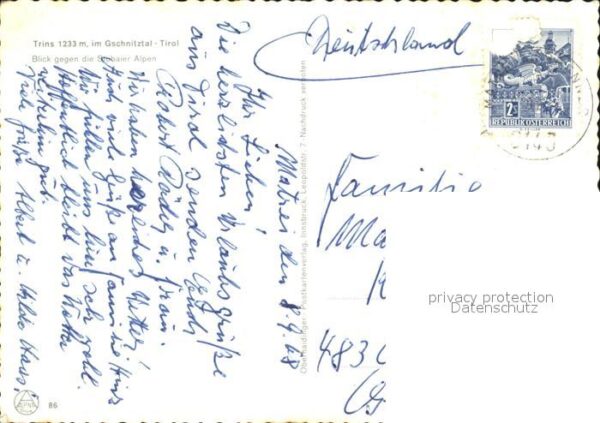 Trins 1233 m, im Gschnitztal - Tirol
Blick gegen die Stubaier Alpen
Deutschland
2 S
REPUBLIK ÖSTERREICH
Matrei den 8.9.68
Ihr Lieben!
Die herzlichsten Urlaubsgrüße
aus Tirol senden Euch
Robert u. Frau.
Wir haben herrliches Wetter!
Auch viele Grüße an Familie
Wir fühlen uns hier sehr wohl.
Hoffentlich bleibt das Wetter
weiterhin gut.
Viele Grüße Albert u.
Postkartenverlag, Innsbruck, Leopoldstr. 7. Nachdruck verboten
Familie
Ma
483
privacy protection
Datenschutz
86